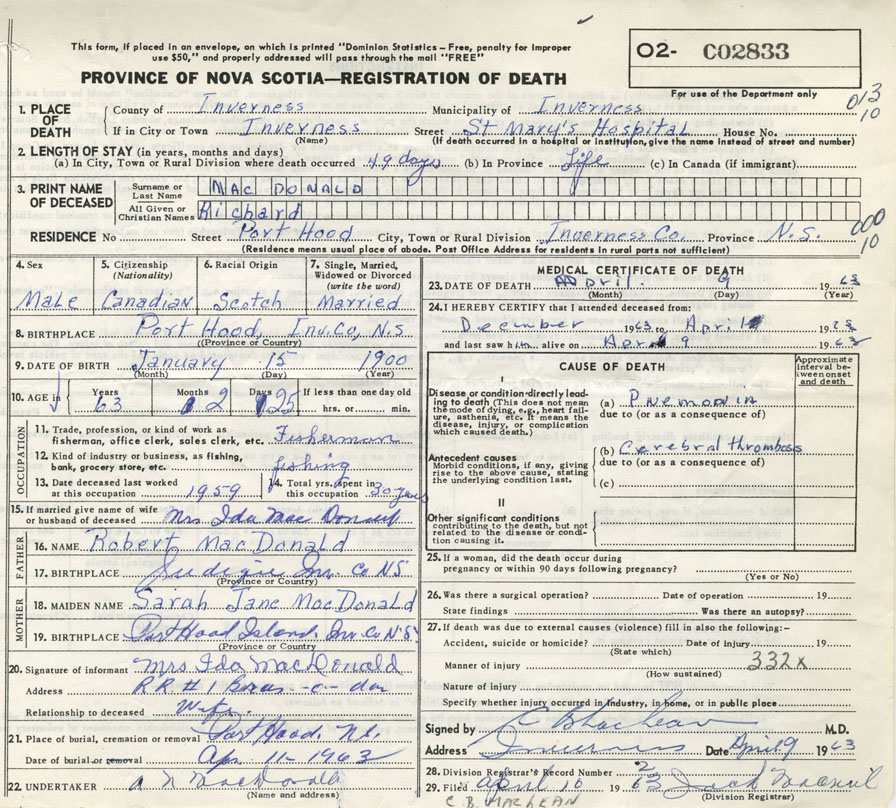 This form, if placed in an envelope, on which is printed "Dominion Statistics - Free, penalty for Improper
use $50," and properly addressed will pass through the mail "FREE"
O2- C02833
PROVINCE OF NOVA SCOTIA—REGISTRATION OF DEATH
For use of the Department only
013
10
1. PLACE OF DEATH County of Inverness Municipality of Inverness
If in City or Town Inverness Street St Mary's Hospital House No.
(Name) (If death occurred in a hospital or institution, give the name instead of street and number)
2. LENGTH OF STAY (in years, months and days)
(a) In City, Town or Rural Division where death occurred 49 days (b) In Province Life (c) In Canada (if immigrant)
3. PRINT NAME OF DECEASED Surname or Last Name MAC DONALD
All Given or Christian Names Richard
000
10
RESIDENCE No Street Port Hood City, Town or Rural Division Inverness Co. Province N.S.
(Residence means usual place of abode. Post Office Address for residents in rural parts not sufficient)
4. Sex 5. Citizenship (Nationality) 6. Racial Origin 7. Single, Married, Widowed or Divorced (write the word)
Male Canadian Scotch Married
8. BIRTHPLACE Port Hood, Inv. Co, N.S
(Province or Country)
9. DATE OF BIRTH January 15 1900
(Month) (Day) (Year)
10. AGE in Years Months Days If less than one day old
63 2 25 hrs. or min.
OCCUPATION
11. Trade, profession, or kind of work as
fisherman, office clerk, sales clerk, etc. Fisherman
12. Kind of industry or business, as fishing,
bank, grocery store, etc. fishing
13. Date deceased last worked at this occupation 1959 14. Total yrs. spent in this occupation 30 years
15. If married give name of wife
or husband of deceased Mrs Ida Mac Donald
FATHER
16. NAME Robert MacDonald
17. BIRTHPLACE Judique Inv. Co NS
(Province or Country)
MOTHER
18. MAIDEN NAME Sarah Jane MacDonald
19. BIRTHPLACE Port Hood Island. Inv Co N.S.
(Province or Country
20. Signature of informant Mrs Ida MacDonald
Address RR #1
Relationship to deceased Wife.
21. Place of burial, cremation or removal Port Hood, N.S.
Date of burial or removal Apr. 11 - 1963
22. UNDERTAKER
(Name and address)
MEDICAL CERTIFICATE OF DEATH
23. DATE OF DEATH April 9 1963
(Month) (Day) (Year)
24. I HEREBY CERTIFY that I attended deceased from:
December 1963 to April 19
and last saw him alive on Apr 9 1963
CAUSE OF DEATH
Approximate interval between onset and death
I
Disease or condition directly leading to death (This does not mean the mode of dying, e.g., heart failure, asthenia, etc. It means the disease, injury, or complication which caused death.)
(a) Pnemonia
due to (or as a consequence of)
Antecedent causes
Morbid conditions, if any, giving rise to the above cause, stating the underlying condition last.
(b) Cerebral thrombosis
due to (or as a consequence of)
(c)
II
Other significant conditions
contributing to the death, but not related to the disease or condition causing it.
25. If a woman, did the death occur during
pregnancy or within 90 days following pregnancy?
(Yes or No)
26. Was there a surgical operation? Date of operation 19
State findings Was there an autopsy?
27. If death was due to external causes (violence) fill in also the following:-
Accident, suicide or homicide? Date of injury 19
(State which)
Manner of injury 332X
(How sustained)
Nature of injury
Specify whether injury occurred in industry, in home, or in public place
Signed by C B MacLean M.D.
Address Inverness Date April 9 1963
28. Division Registrar's Record Number 2
29. Filed April 10 1963 Jack
C. B. MACLEAN (Division Registrar)